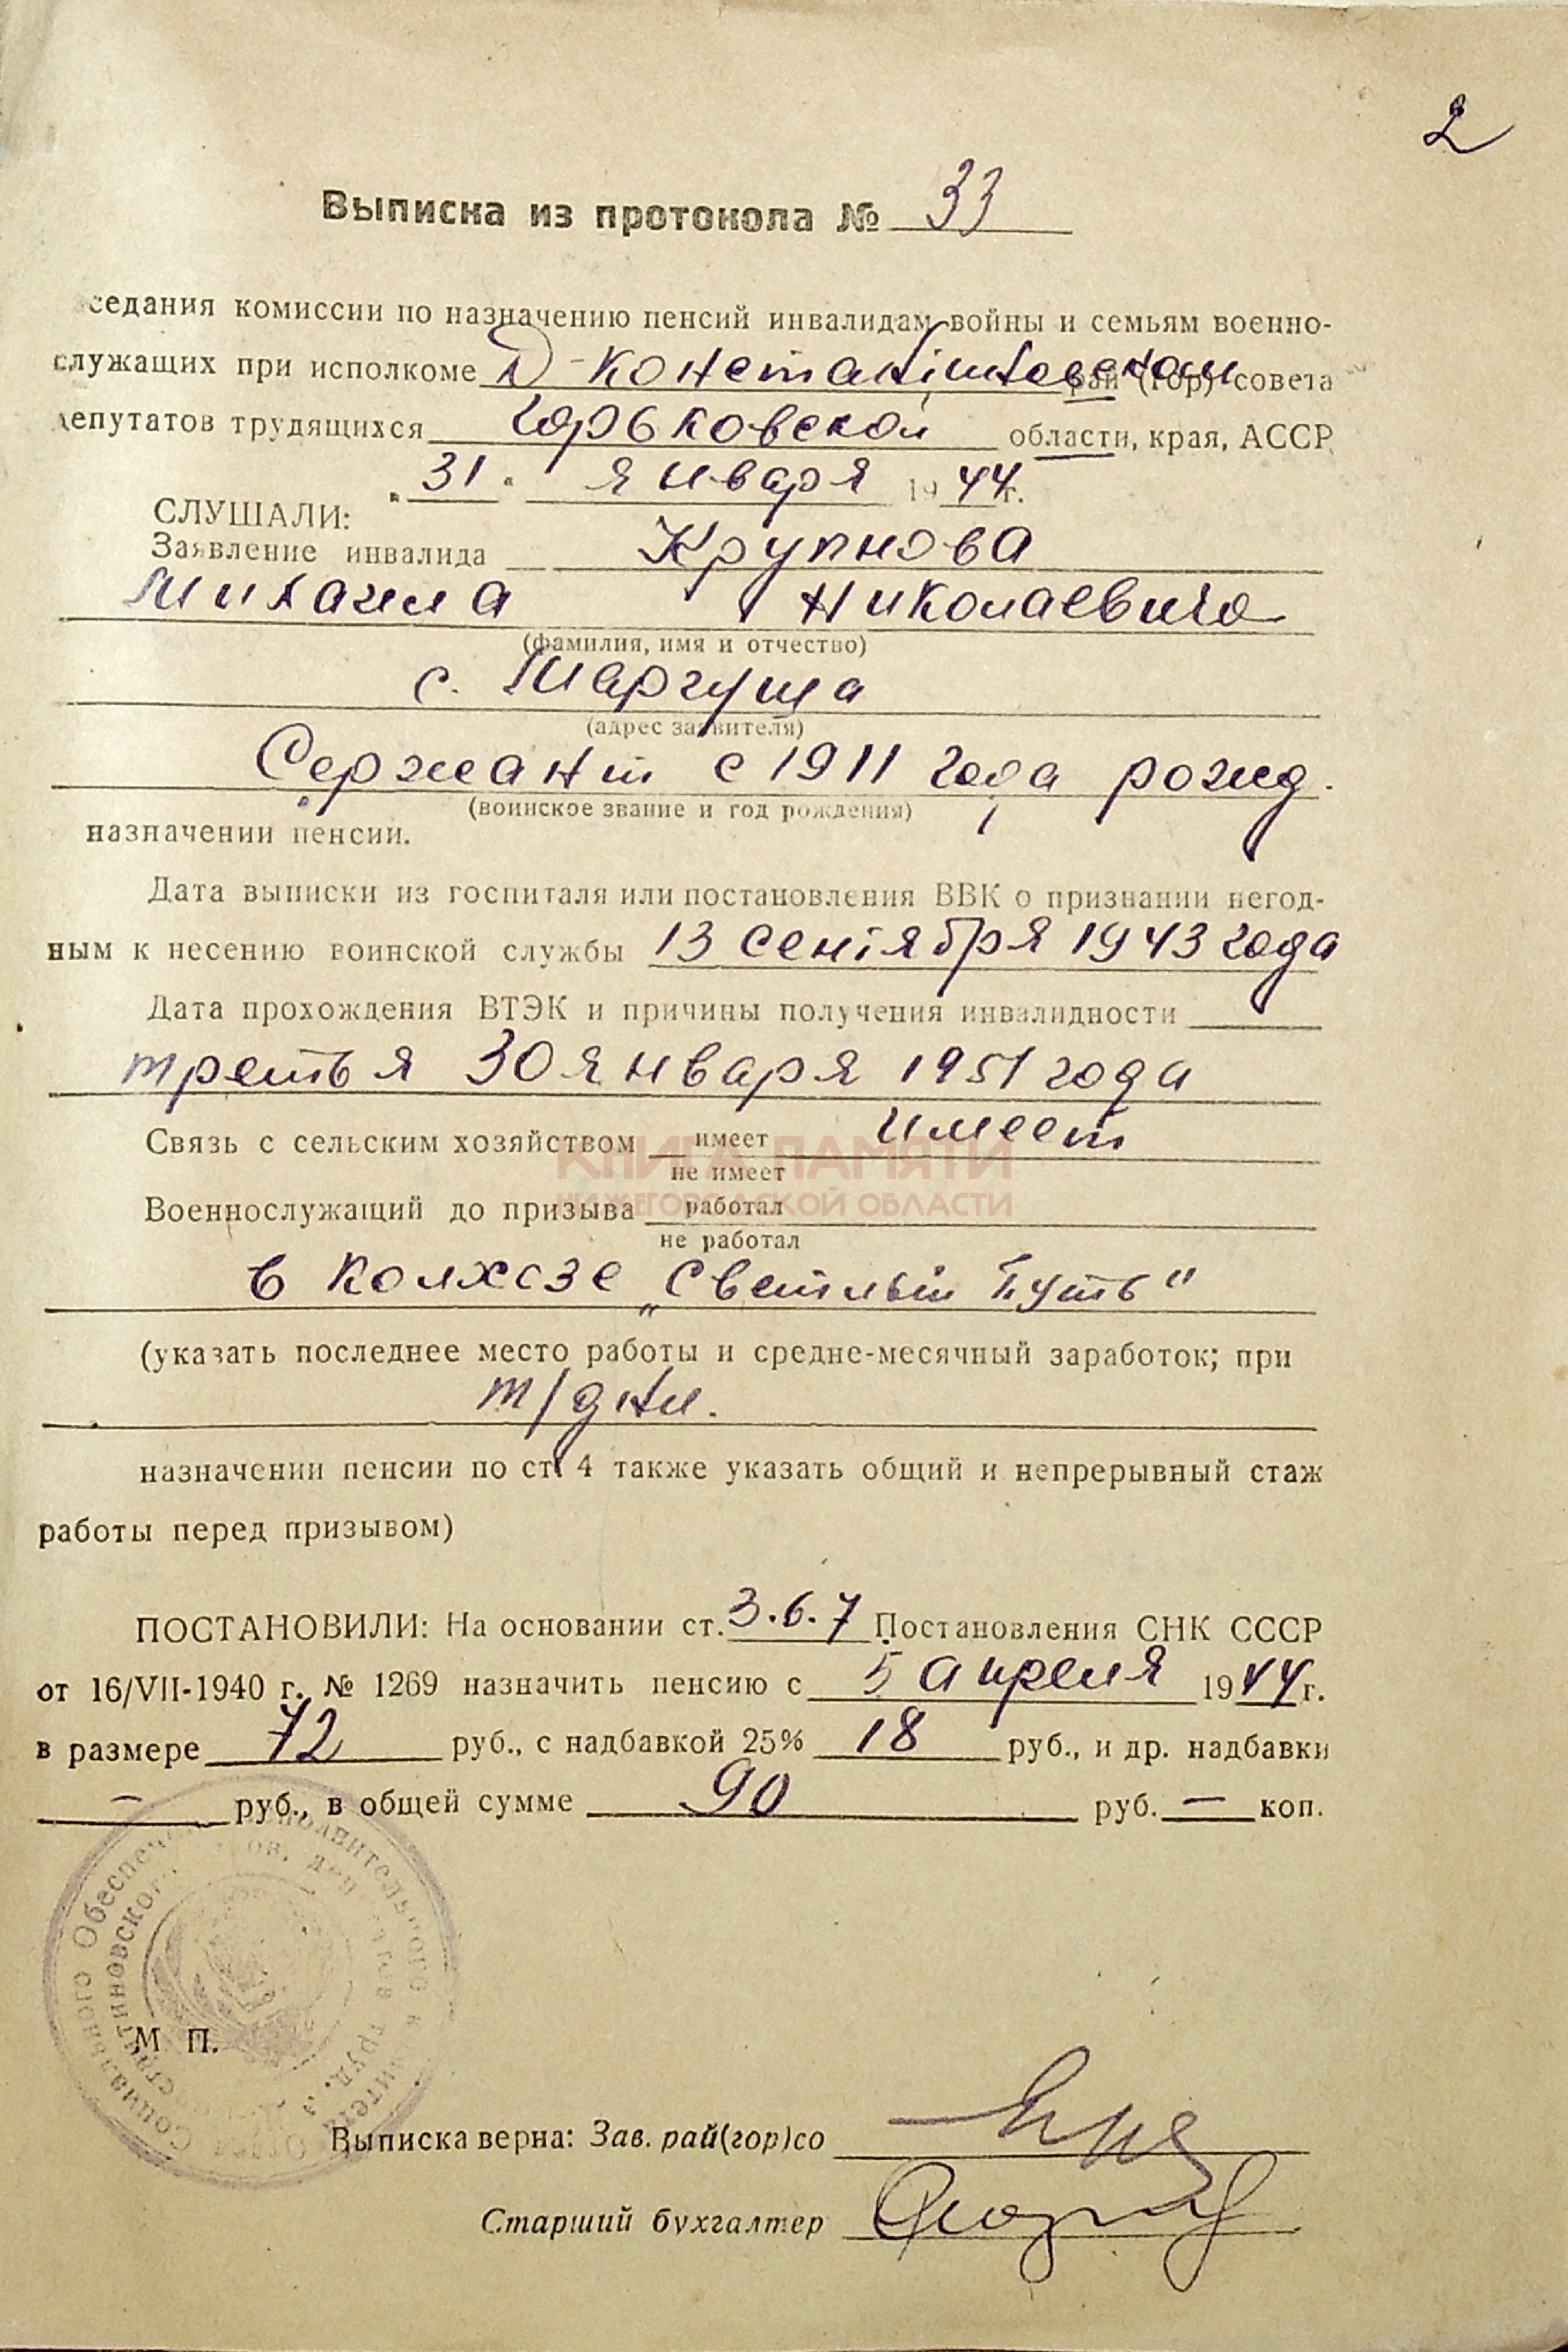 2
Выписка из протокола № 33
седания комиссии по назначению пенсий инвалидам войны и семьям военно-
служащих при исполкоме Д-Константиновском рай (гор) совета
депутатов трудящихся Горьковской области, края, АССР
„31" января 1944г.
СЛУШАЛИ:
Заявление инвалида Крупнова
Михаила Николаевича
(фамилия, имя и отчество)
с. Маргуша
(адрес заявителя)
Сержант с 1911 года рожд.
(воинское звание и год рождения)
назначении пенсии.
Дата выписки из госпиталя или постановления ВВК о признании негод-
ным к несению воинской службы 13 сентября 1943 года
Дата прохождения ВТЭК и причины получения инвалидности
третья 30 января 1951 года
Связь с сельским хозяйством имеет имеет
не имеет
КНИГА ПАМЯТИ
НИЖЕГОРОДСКОЙ ОБЛАСТИ
Военнослужащий до призыва работал
не работал
в колхозе „Светлый Путь"
(указать последнее место работы и средне-месячный заработок; при
т/дни.
назначении пенсии по ст. 4 также указать общий и непрерывный стаж
работы перед призывом)
ПОСТАНОВИЛИ: На основании ст. 3.6.7 Постановления СНК СССР
от 16/VII-1940 г. № 1269 назначить пенсию с 5 апреля 1944 г.
в размере 72 руб., с надбавкой 25% 18 руб., и др. надбавки
— руб., в общей сумме 90 руб. — коп.
М П.
Выписка верна: Зав. рай(гор)со
Старший бухгалтер